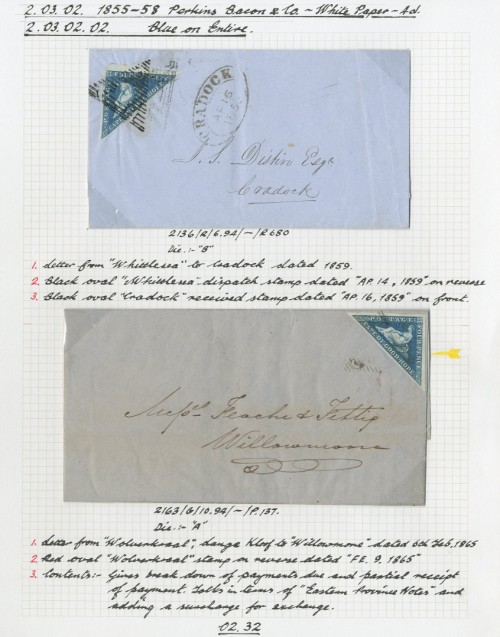 2.03.02. 1855-58 Perkins Bacon & Co. - White Paper - 4d.
2.03.02.02. Blue on Entire.
CRADOCK
AP 15
185
J. S. Distin Esqr
Cradock
2136/R/6.94/-/R680
Die:- "B"
1. Letter from "Whittlesea" to Cradock dated 1859.
2. Black oval "Whittlesea" dispatch stamp dated "AP. 14, 1859" on reverse
3. Black oval "Cradock" received stamp dated "AP. 16, 1859" on front.
POSTAGE
FOUR PENCE
CAPE OF GOOD HOPE
Messrs &
Willowmore
2163/G/10.94/-/P.137.
Die:- "A"
1. Letter from "Wolverkraal", Lange Kloof to "Willowmore" dated 6th Feb, 1865
2. Red oval "Wolverkraal" stamp on reverse dated "FE. 9, 1865"
3. Contents:- Gives break down of payments due and partial receipt
of payment. Talks in terms of "Eastern Province Notes" and
adding a surcharge for exchange.
02.32